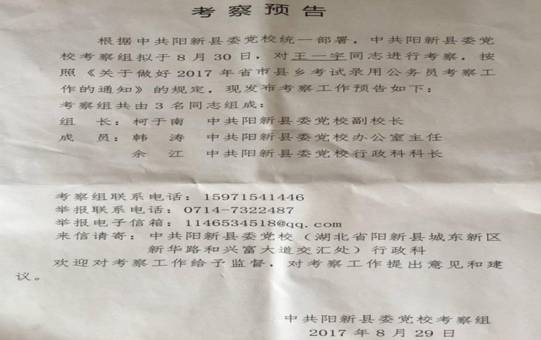 考察预告
根据中共阳新县委党校统一部署，中共阳新县委党
校考察组拟于8月30日，对王一宇同志进行考察。按
照《关于做好2017年省市县乡考试录用公务员考察工
作的通知》的规定，现发布考察工作预告如下：
考察组共由3名同志组成：
组 长：柯于南 中共阳新县委党校副校长
成 员：韩 涛 中共阳新县委党校办公室主任
余 江 中共阳新县委党校行政科科长
考察组联系电话：15971541446
举报联系电话：0714-7322487
举报电子信箱：1146534518@qq.com
来信请寄：中共阳新县委党校（湖北省阳新县城东新区
新华路和兴富大道交汇处）行政科
欢迎对考察工作给予监督，对考察工作提出意见和建
议。
中共阳新县委党校考察组
2017年8月29日